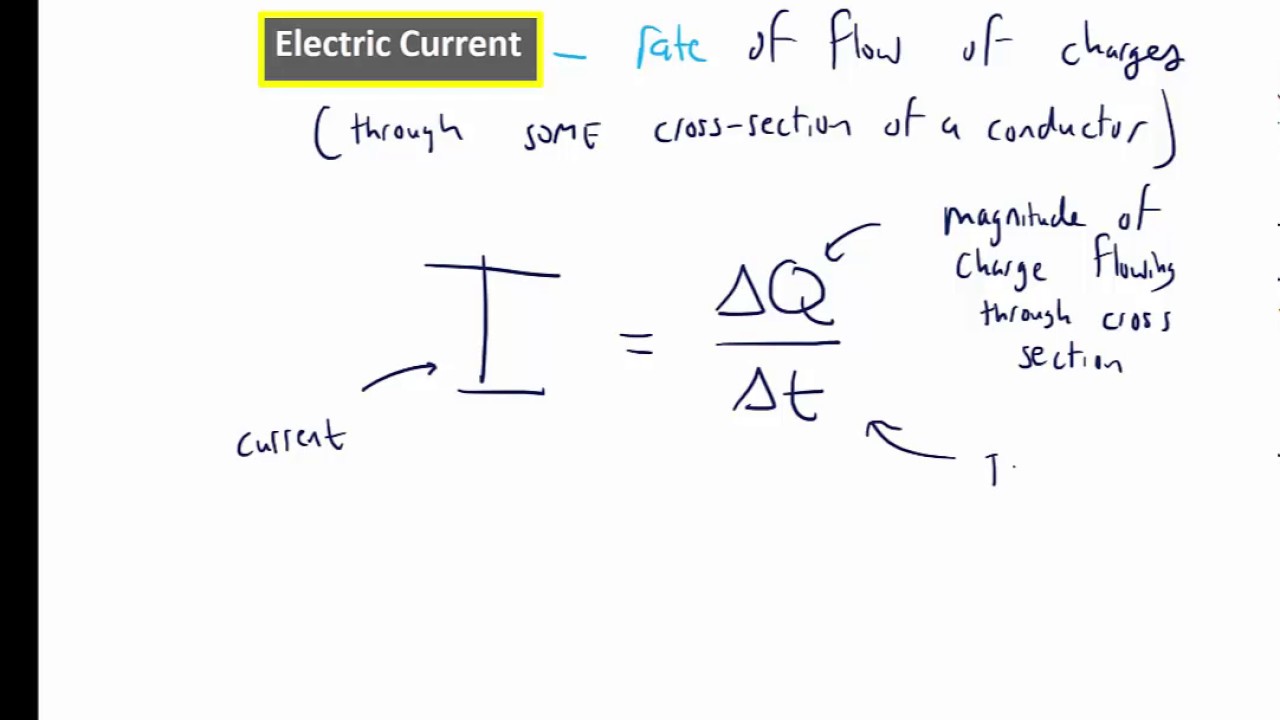 Electric Current – rate of flow of charges
(through SOME cross-section of a conductor)
magnitude of
charge flowing
through cross
section
I = ΔQ
Δt
current